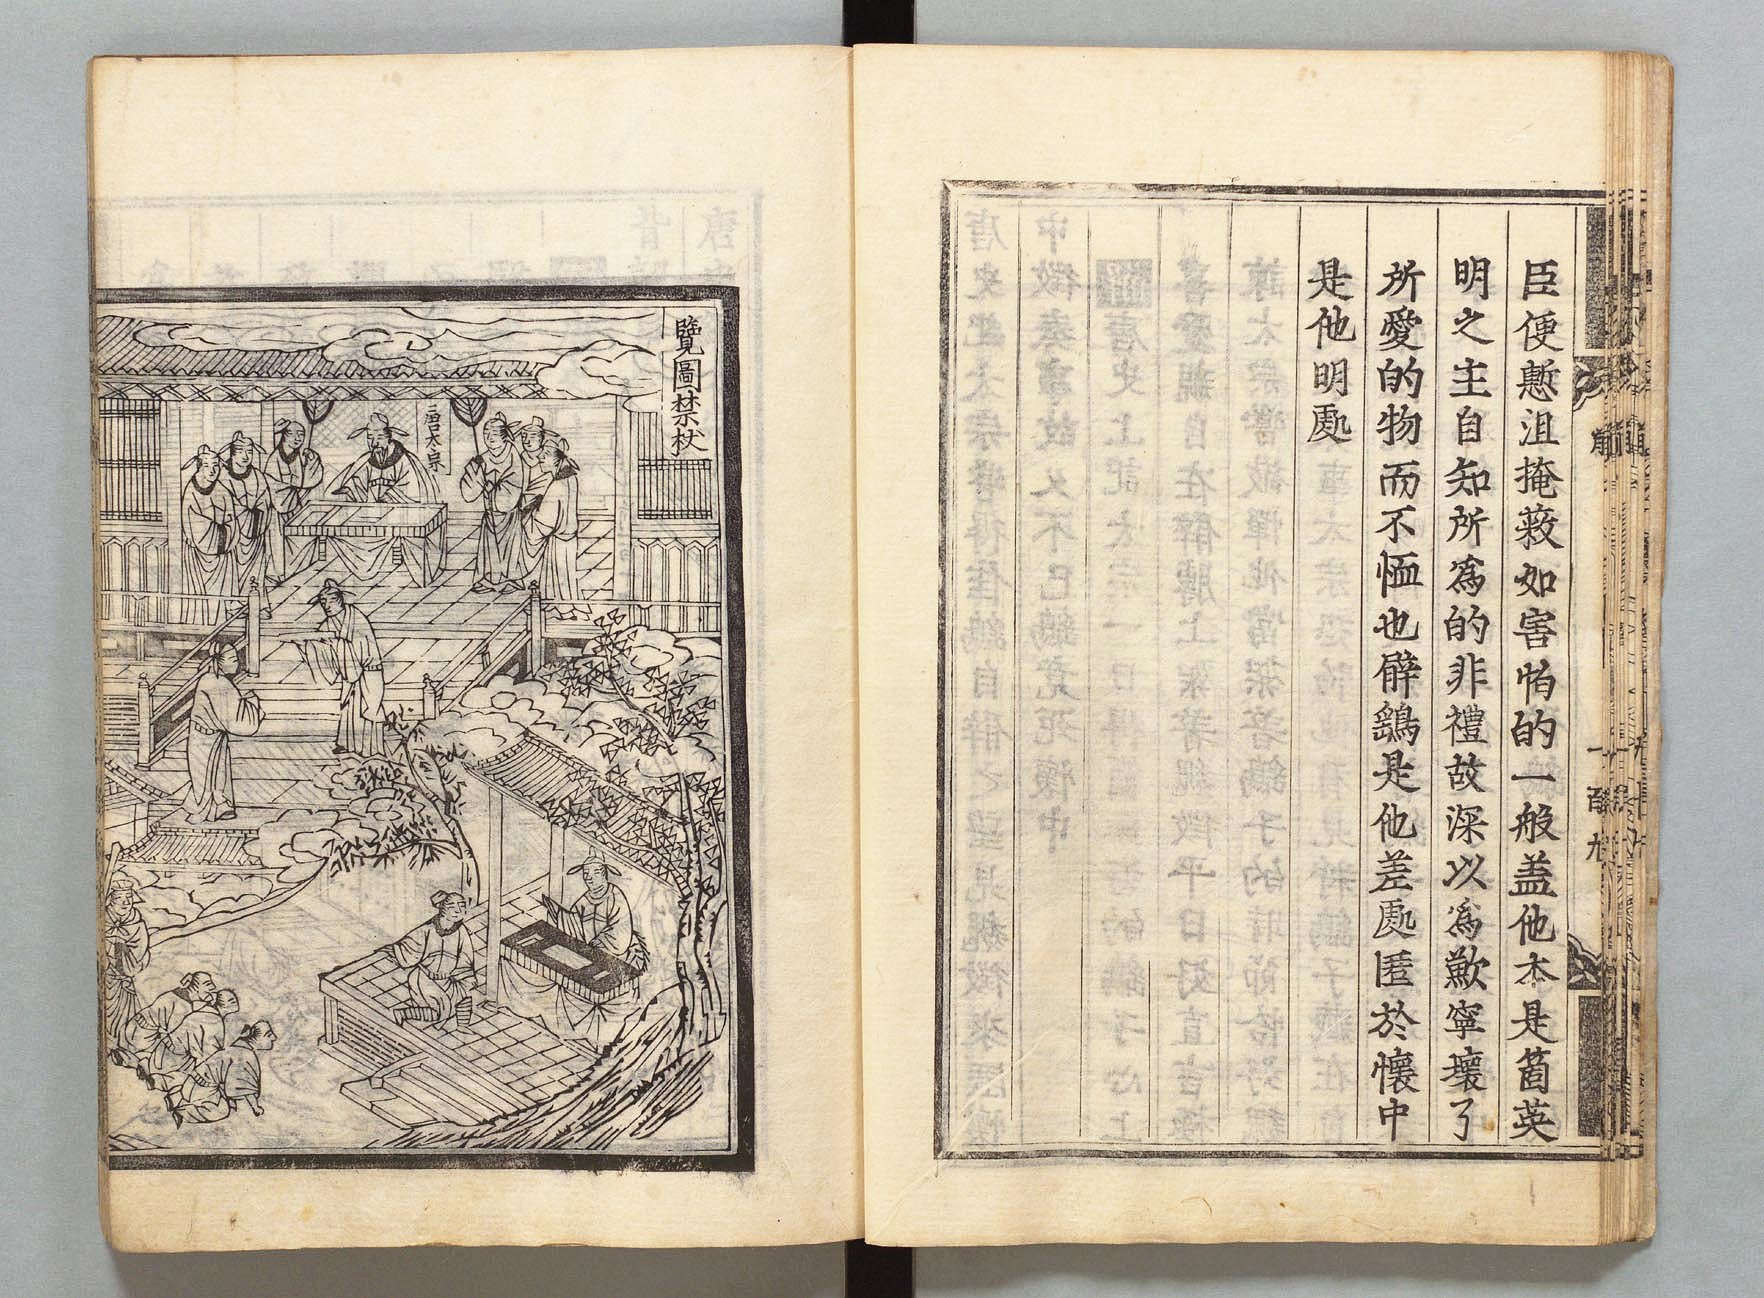 臣便慙沮掩蔽如害怕的一般盖他本是箇英
明之主自知所爲的非禮故深以爲歉寧壞了
所愛的物而不恤也臂鷂是他差處匿於懷中
是他明處
一百九
覽圖禁杖
唐太宗